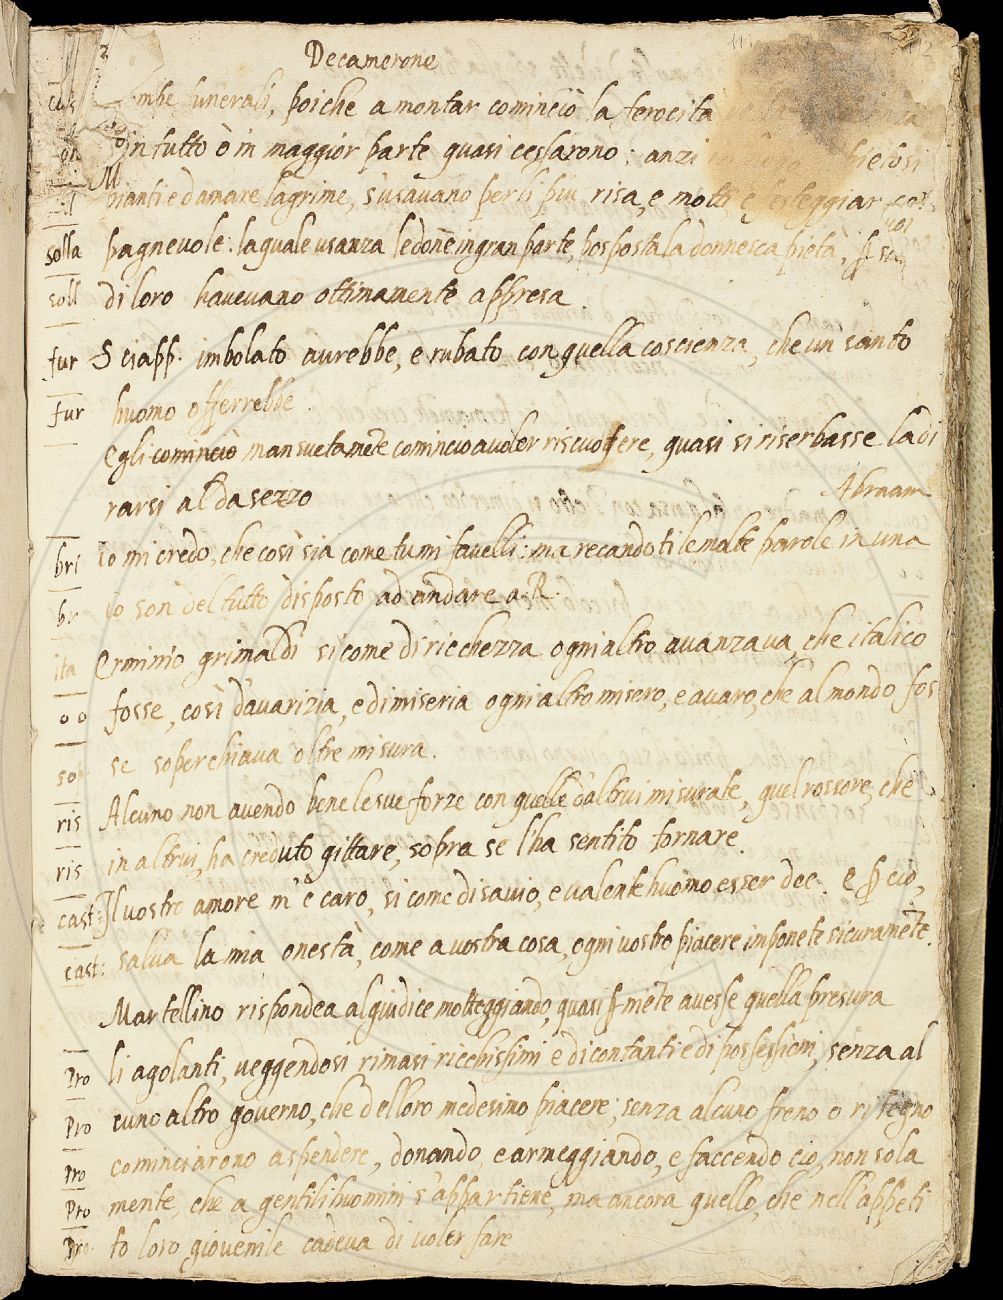 Decamerone
mpe funerali, poiche a montar cominciò la ferocita
in tutto ò in maggior parte quasi cessarono: anzi pietosi
pianti e d'amare lagrime, s'usavano per li piu risa, e motti, e festeggiar
solla pagnevole: la quale usanza le dōne in gran parte, posposta la donnesca pietà,
soll di loro havevano ottimamente appresa.
fur S ciapp. imbolato aurebbe, e rubato con quella coscienza, che un santo
fur huomo offerrebbe.
Egli cominciò mansuetamēte cominciò a voler riscuotere, quasi si riserbasse l'adi
rarsi al da sezzo Abraam
bri io mi credo, che così sia come tu mi favelli: ma recandoti le molte parole in una
br io son del tutto disposto ad andare a R.
ita Erminio grimaldi si come di ricchezza ogni altro avanzava, che italico
o o fosse, così d'avarizia, e di miseria ogni altro misero, e avaro, che al mondo fos
sop se soperchiava oltre misura.
ris Alcuno non avendo bene le sue forze con quelle d'altrui misurate, quel rossore, che
ris in altrui, ha creduto gittare, sopra se l'ha sentito tornare.
cast: Il vostro amore m'è caro, si come di savio, e valente huomo esser dee. e ꝑ ciò,
cast: salva la mia onestà, come a vostra cosa, ogni vostro piacere imponete sicuramēte.
Martellino rispondea al giudice motteggiando, quasi ꝑ mēte avesse quella presura
Pro li agolanti, veggendosi rimasi ricchissimi e di contanti e di possessioni, senza al
Pro cuno altro governo, che del loro medesimo piacere, senza alcuno freno o ritegno
Pro cominciarono a spendere, donando, e armeggiando, e faccendo ciò, non sola
Pro mente, che a gentili huomini s'appartiene, ma ancora quello, che nell'appeti
Pro to loro giovenile cadeva di voler fare